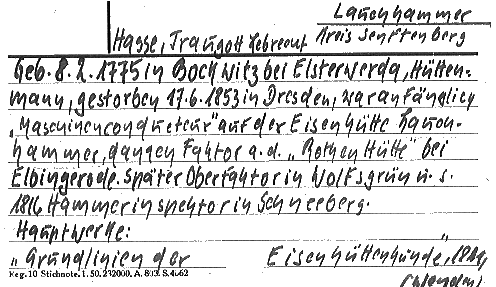 Lauchhammer
Hasse, Traugott Lebrecht Kreis Senftenberg
Geb. 8.2.1775 in Bockwitz bei Elsterwerda, Hütten-
mann, gestorben 17.6.1853 in Dresden, war anfänglich
„Maschinenconducteur" auf der Eisenhütte Lauch-
hammer, dan gen Faktor a.d. „Rothen Hütte" bei
Elbingerode. später Oberfaktor in Wolfsgrün u. s.
1816 Hammerinspektor in Schneeberg.
Hauptwerke:
„Grundlinien der Eisenhüttenkunde,
Reg. 10 Stichnote. 1. 50. 232000. A. 803. S. 4662